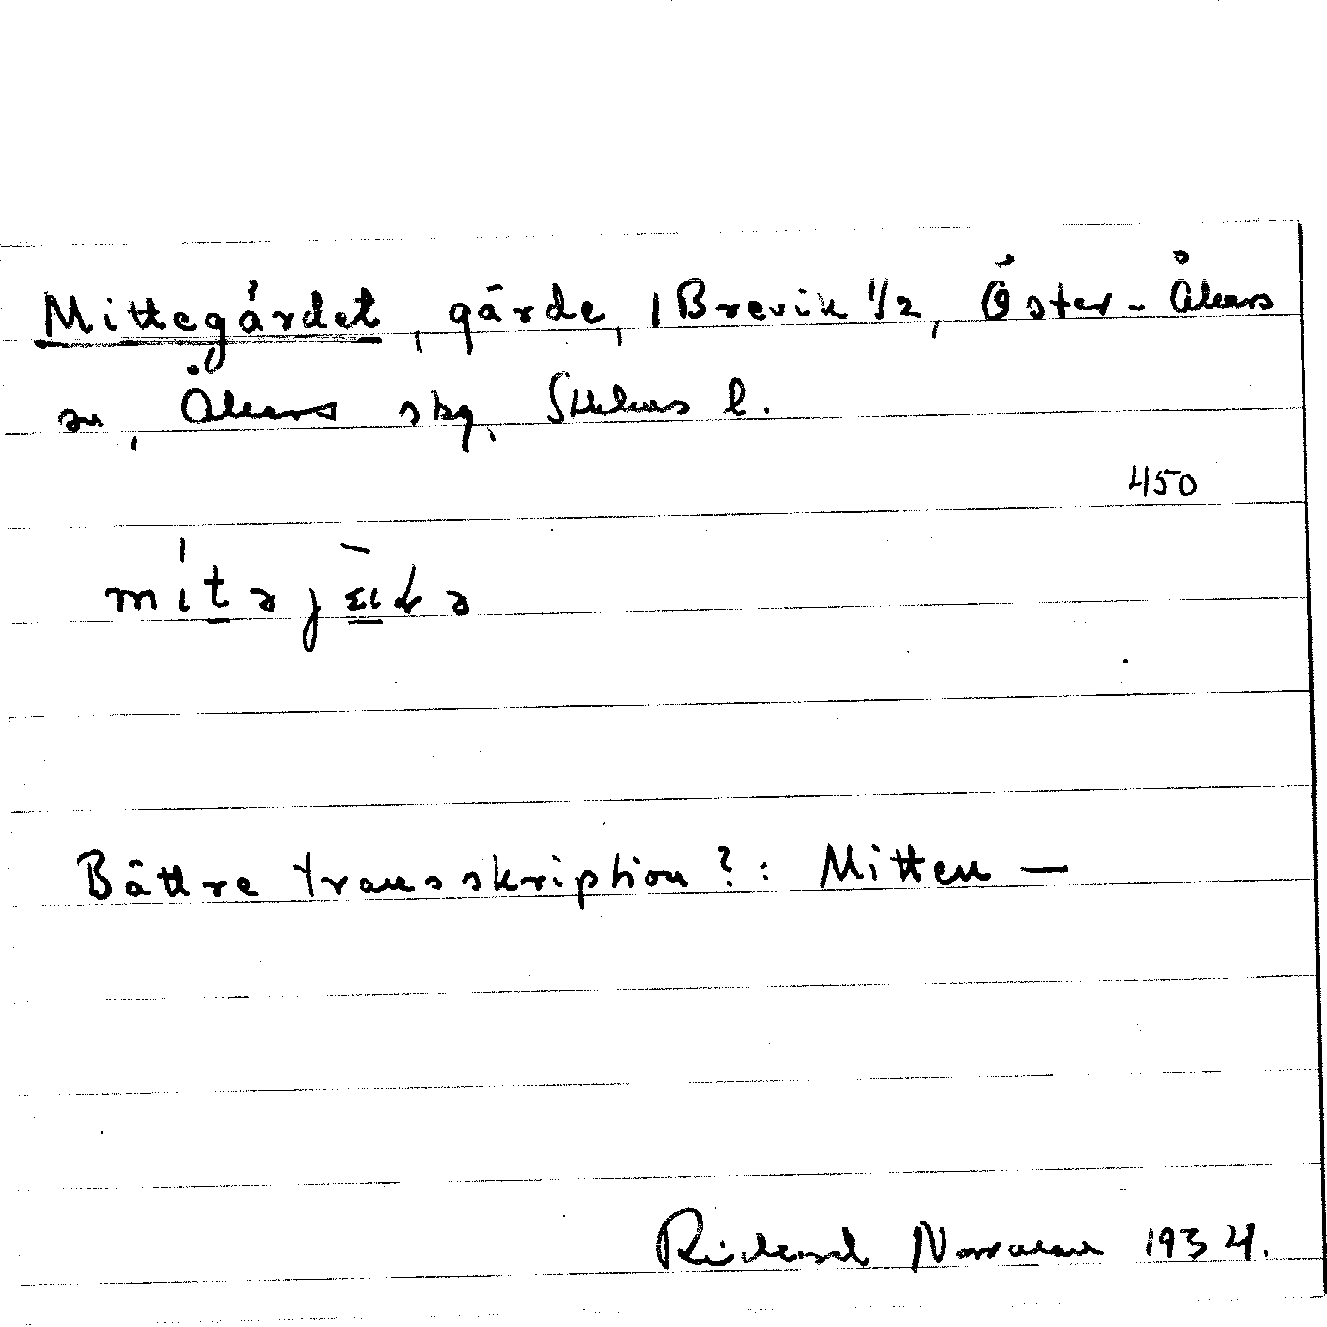 Mittegärdet, gärde, 1 Brevik 1/2, Öster-Åkers
sn, Åkers skg, Sthlms l.
450
mitəjæ̀ɖə
Bättre transskription?: Mitten —
Rickard Norrman 1934.